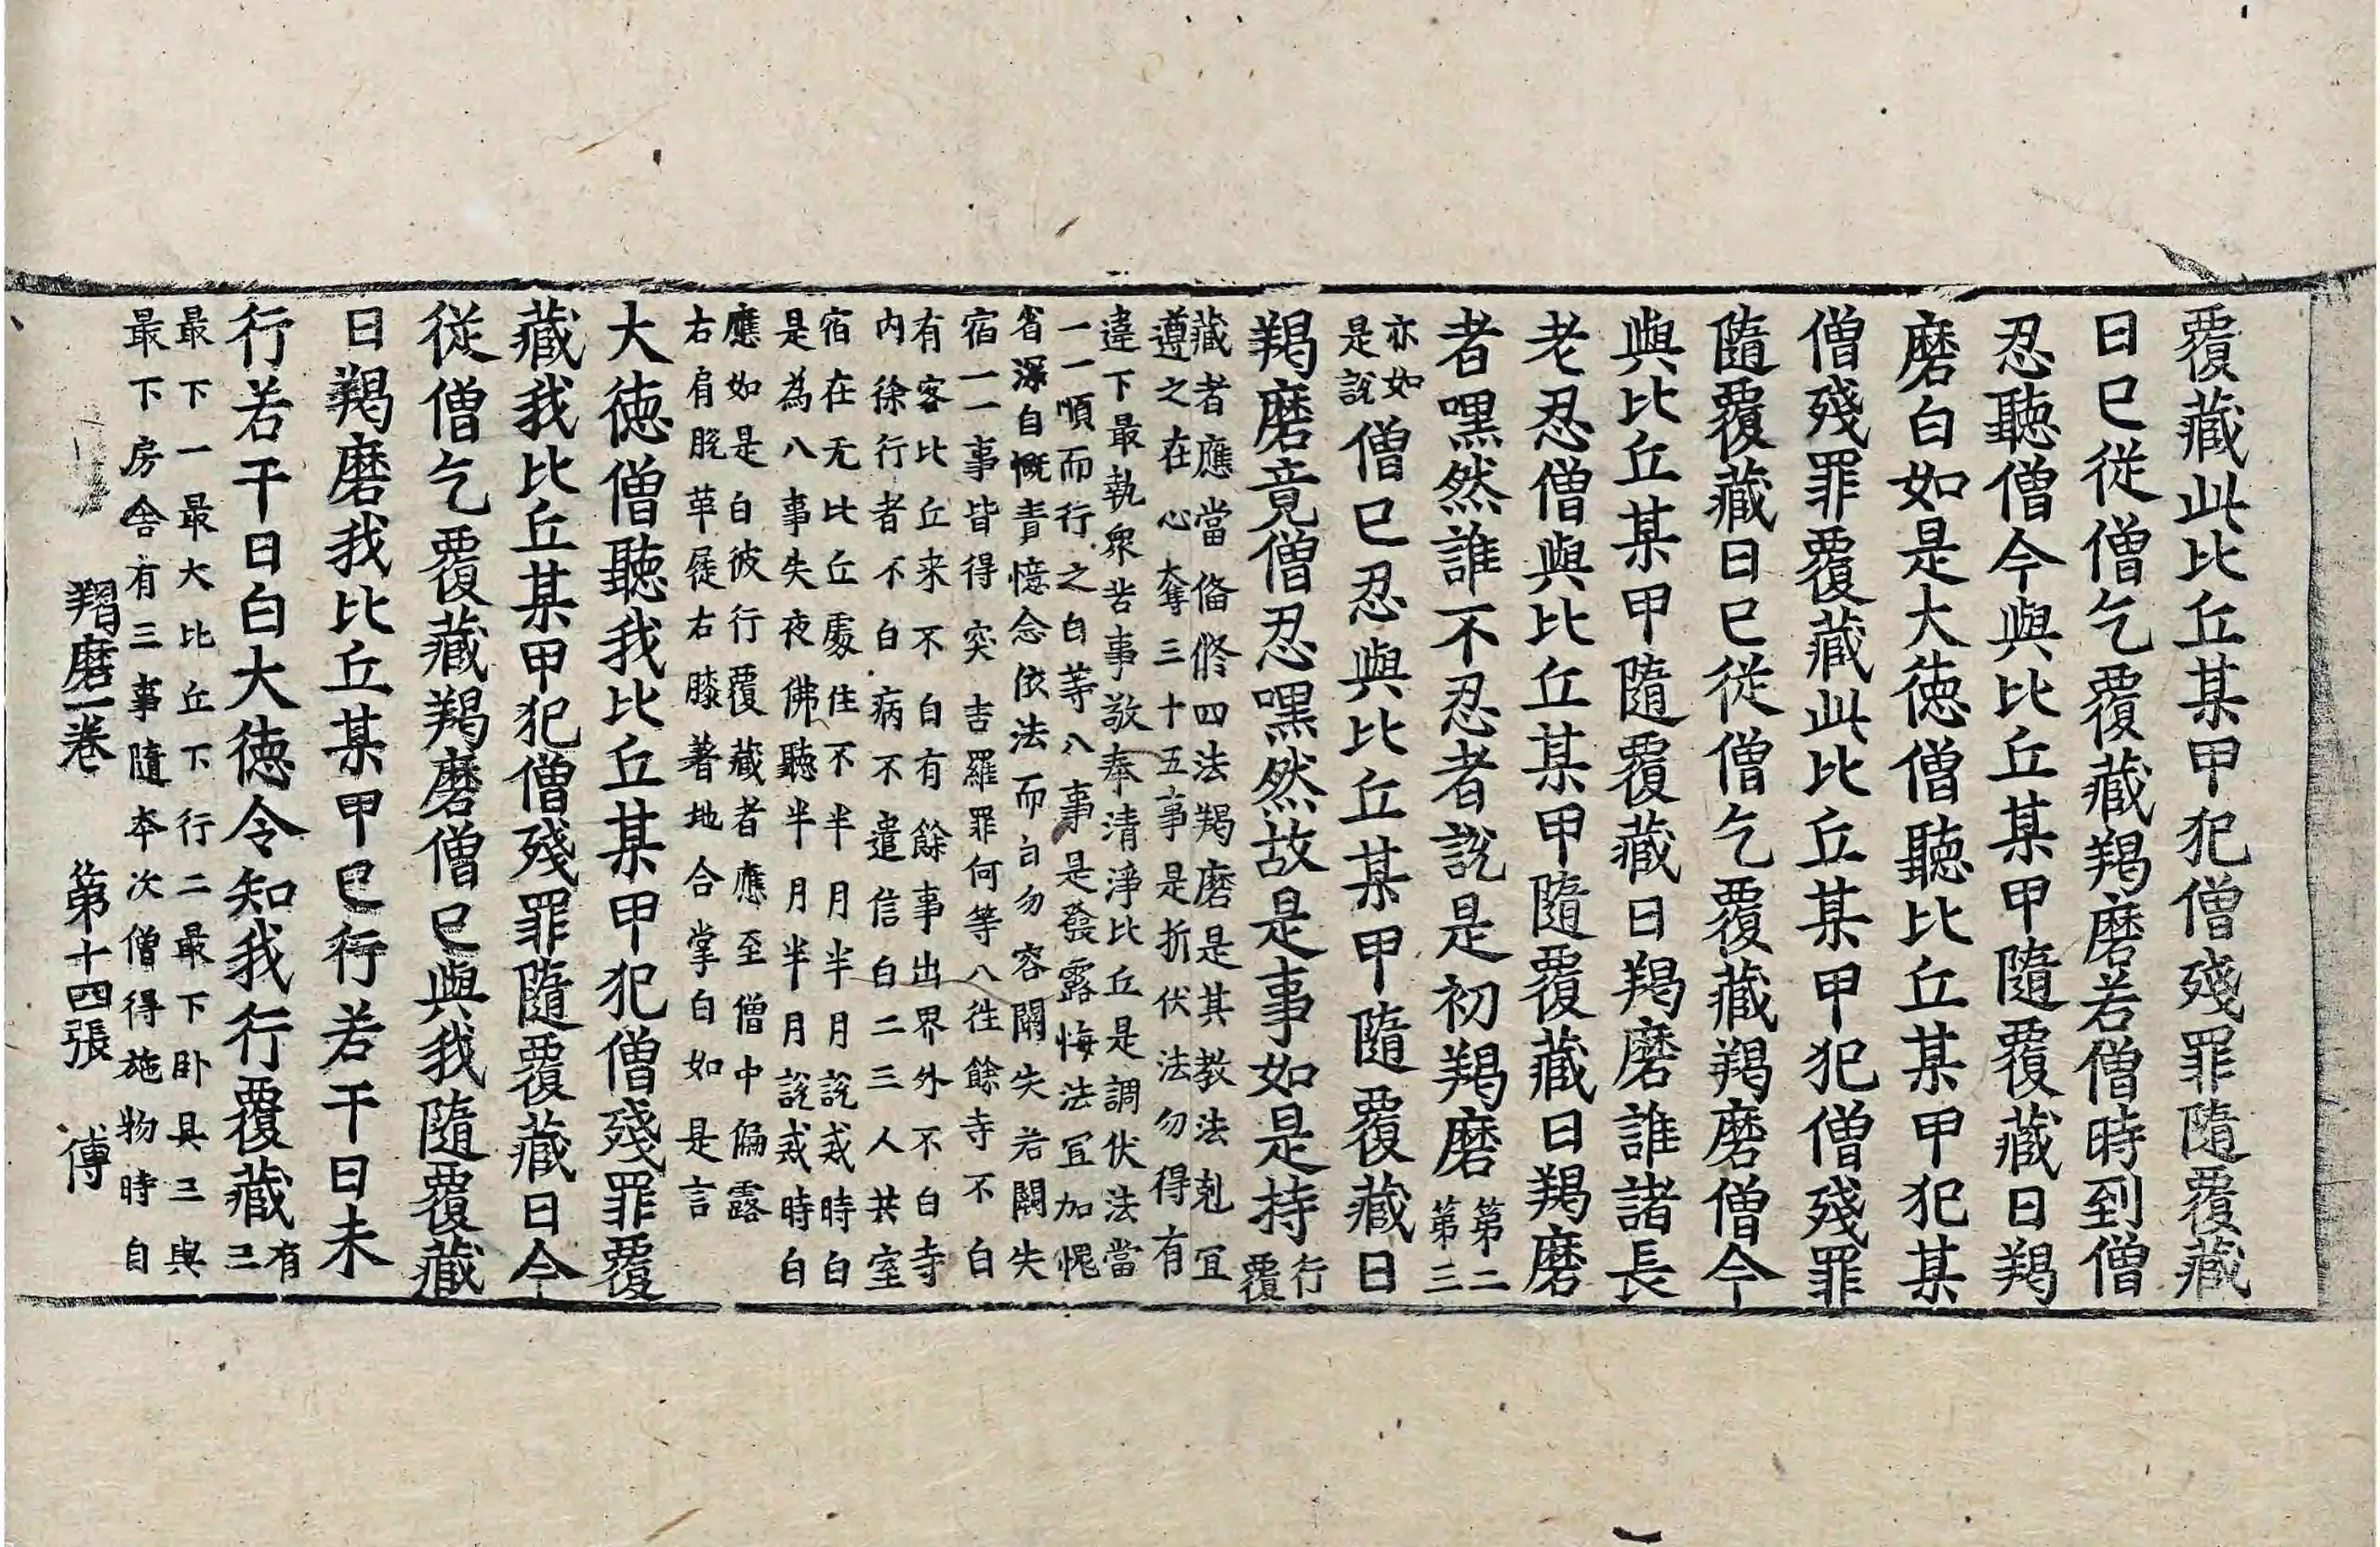 覆藏此比丘某甲犯僧殘罪隨覆藏
日巳從僧乞覆藏羯磨若僧時到僧
忍聽僧今與比丘某甲隨覆藏日羯
磨白如是大德僧聽比丘某甲犯某
僧殘罪覆藏此比丘某甲犯僧殘罪
隨覆藏日巳從僧乞覆藏羯磨僧今
與比丘某甲隨覆藏日羯磨誰諸長
老忍僧與比丘某甲隨覆藏日羯磨
者嘿然誰不忍者說是初羯磨第二
第三
亦如
是說僧巳忍與比丘某甲隨覆藏日
羯磨竟僧忍嘿然故是事如是持行
覆
藏者應當俻修四法羯磨是其教法剋冝
遵之在心奪三十五事是折伏法勿得有
違下最執衆苦事敬奉清淨比丘是調伏法當
一一順而行之白等八事是發露悔法冝加愧
省深自慨責憶念依法而白勿容闕失若闕失
宿一一事皆得突吉羅罪何等八徃餘寺不白
有客比丘来不白有餘事出界外不白寺
内徐行者不白病不遣信白二三人共室
宿在无比丘處住不半月半月說戒時白
是為八事失夜佛聽半月半月說戒時白
應如是白彼行覆藏者應至僧中偏露
右肩脫革屣右膝著地合掌白如是言
大德僧聽我比丘某甲犯僧殘罪覆
藏我比丘某甲犯僧殘罪隨覆藏日今
從僧乞覆藏羯磨僧巳與我隨覆藏
日羯磨我比丘某甲巳行若干日未
行若干日白大德令知我行覆藏有
三
最下一最大比丘下行二最下卧具三與
最下房舍有三事隨夲次僧得施物時自
羯磨一卷　第十四張　傅